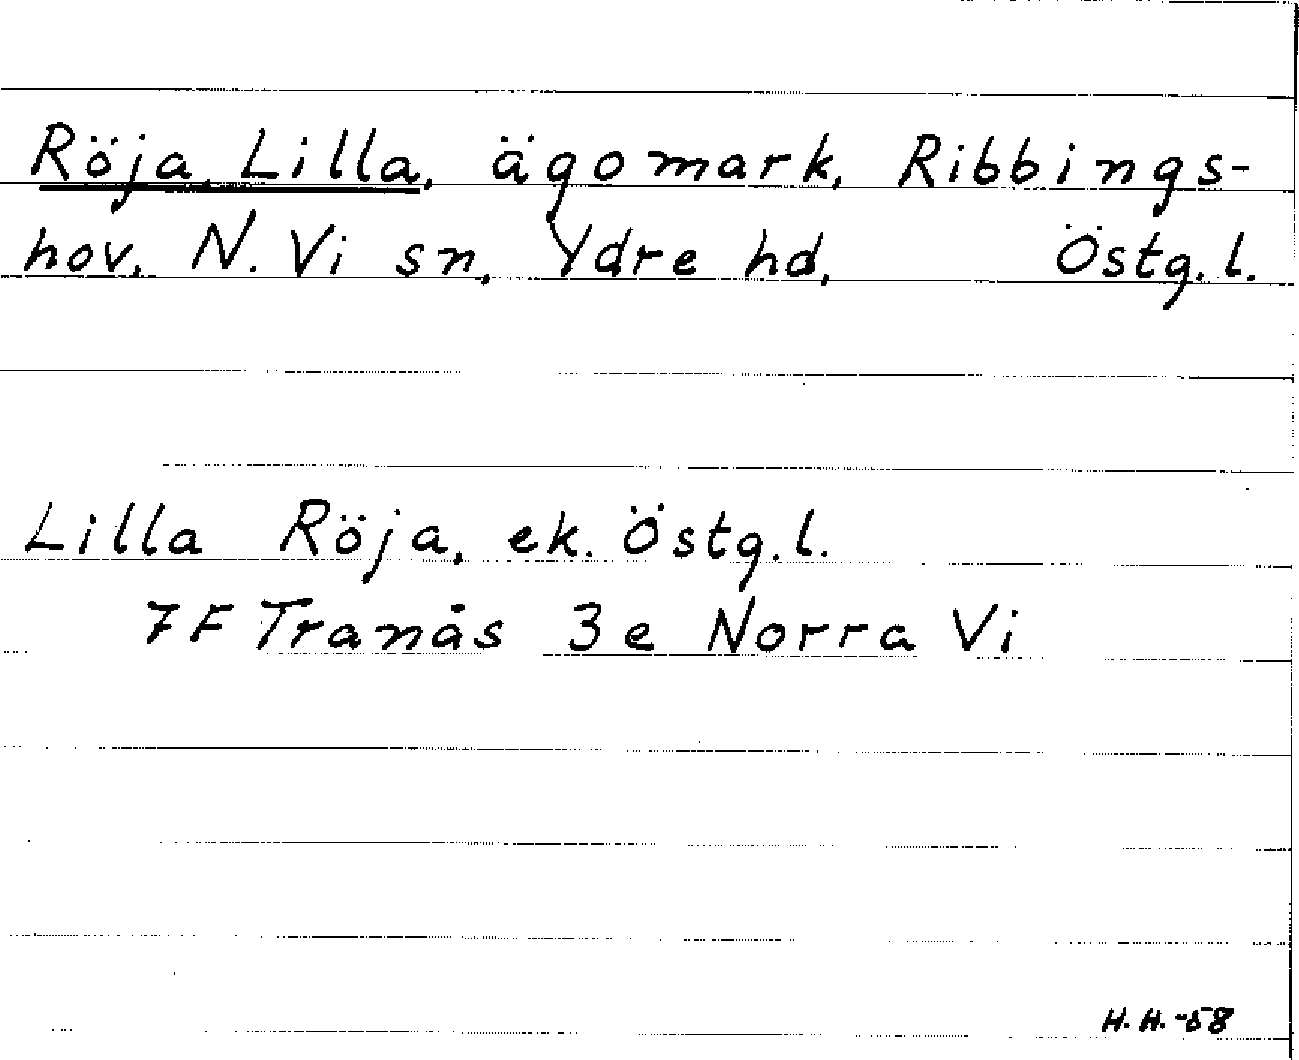 Röja, Lilla, ägomark, Ribbings-
hov, N. Vi sn, Ydre hd, Östg. l.
Lilla Röja, ek. Östg. l.
7F Tranås 3e Norra Vi
H. H. -58